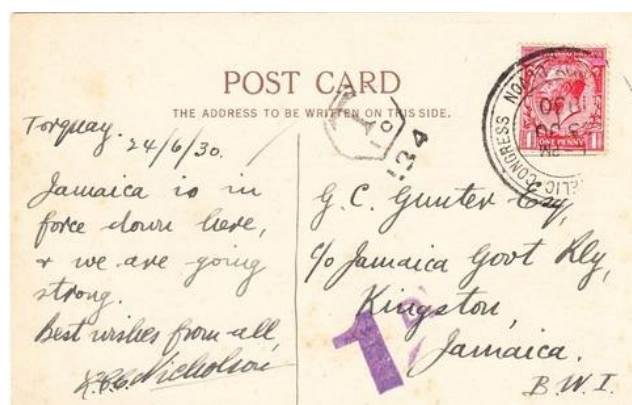 POST CARD
THE ADDRESS TO BE WRITTEN ON THIS SIDE.
Torquay.
24/6/30.
Jamaica is in
force down here,
& we are going
strong.
Best wishes from all,
Nicholson
T
10
134
CONGRESS
ONE PENNY
G. C. Gunter Esq,
c/o Jamaica Govt Rly,
Kingston,
Jamaica.
B.W.I.
1D